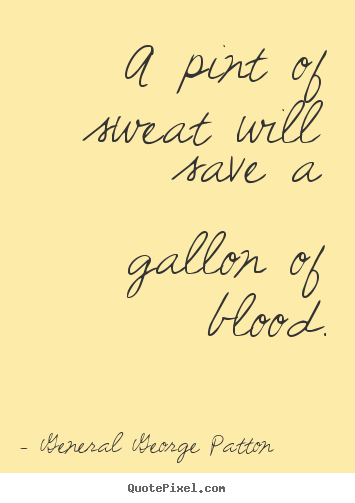 A pint of
sweat will
save a
gallon of
blood.
- General George Patton
QuotePixel.com